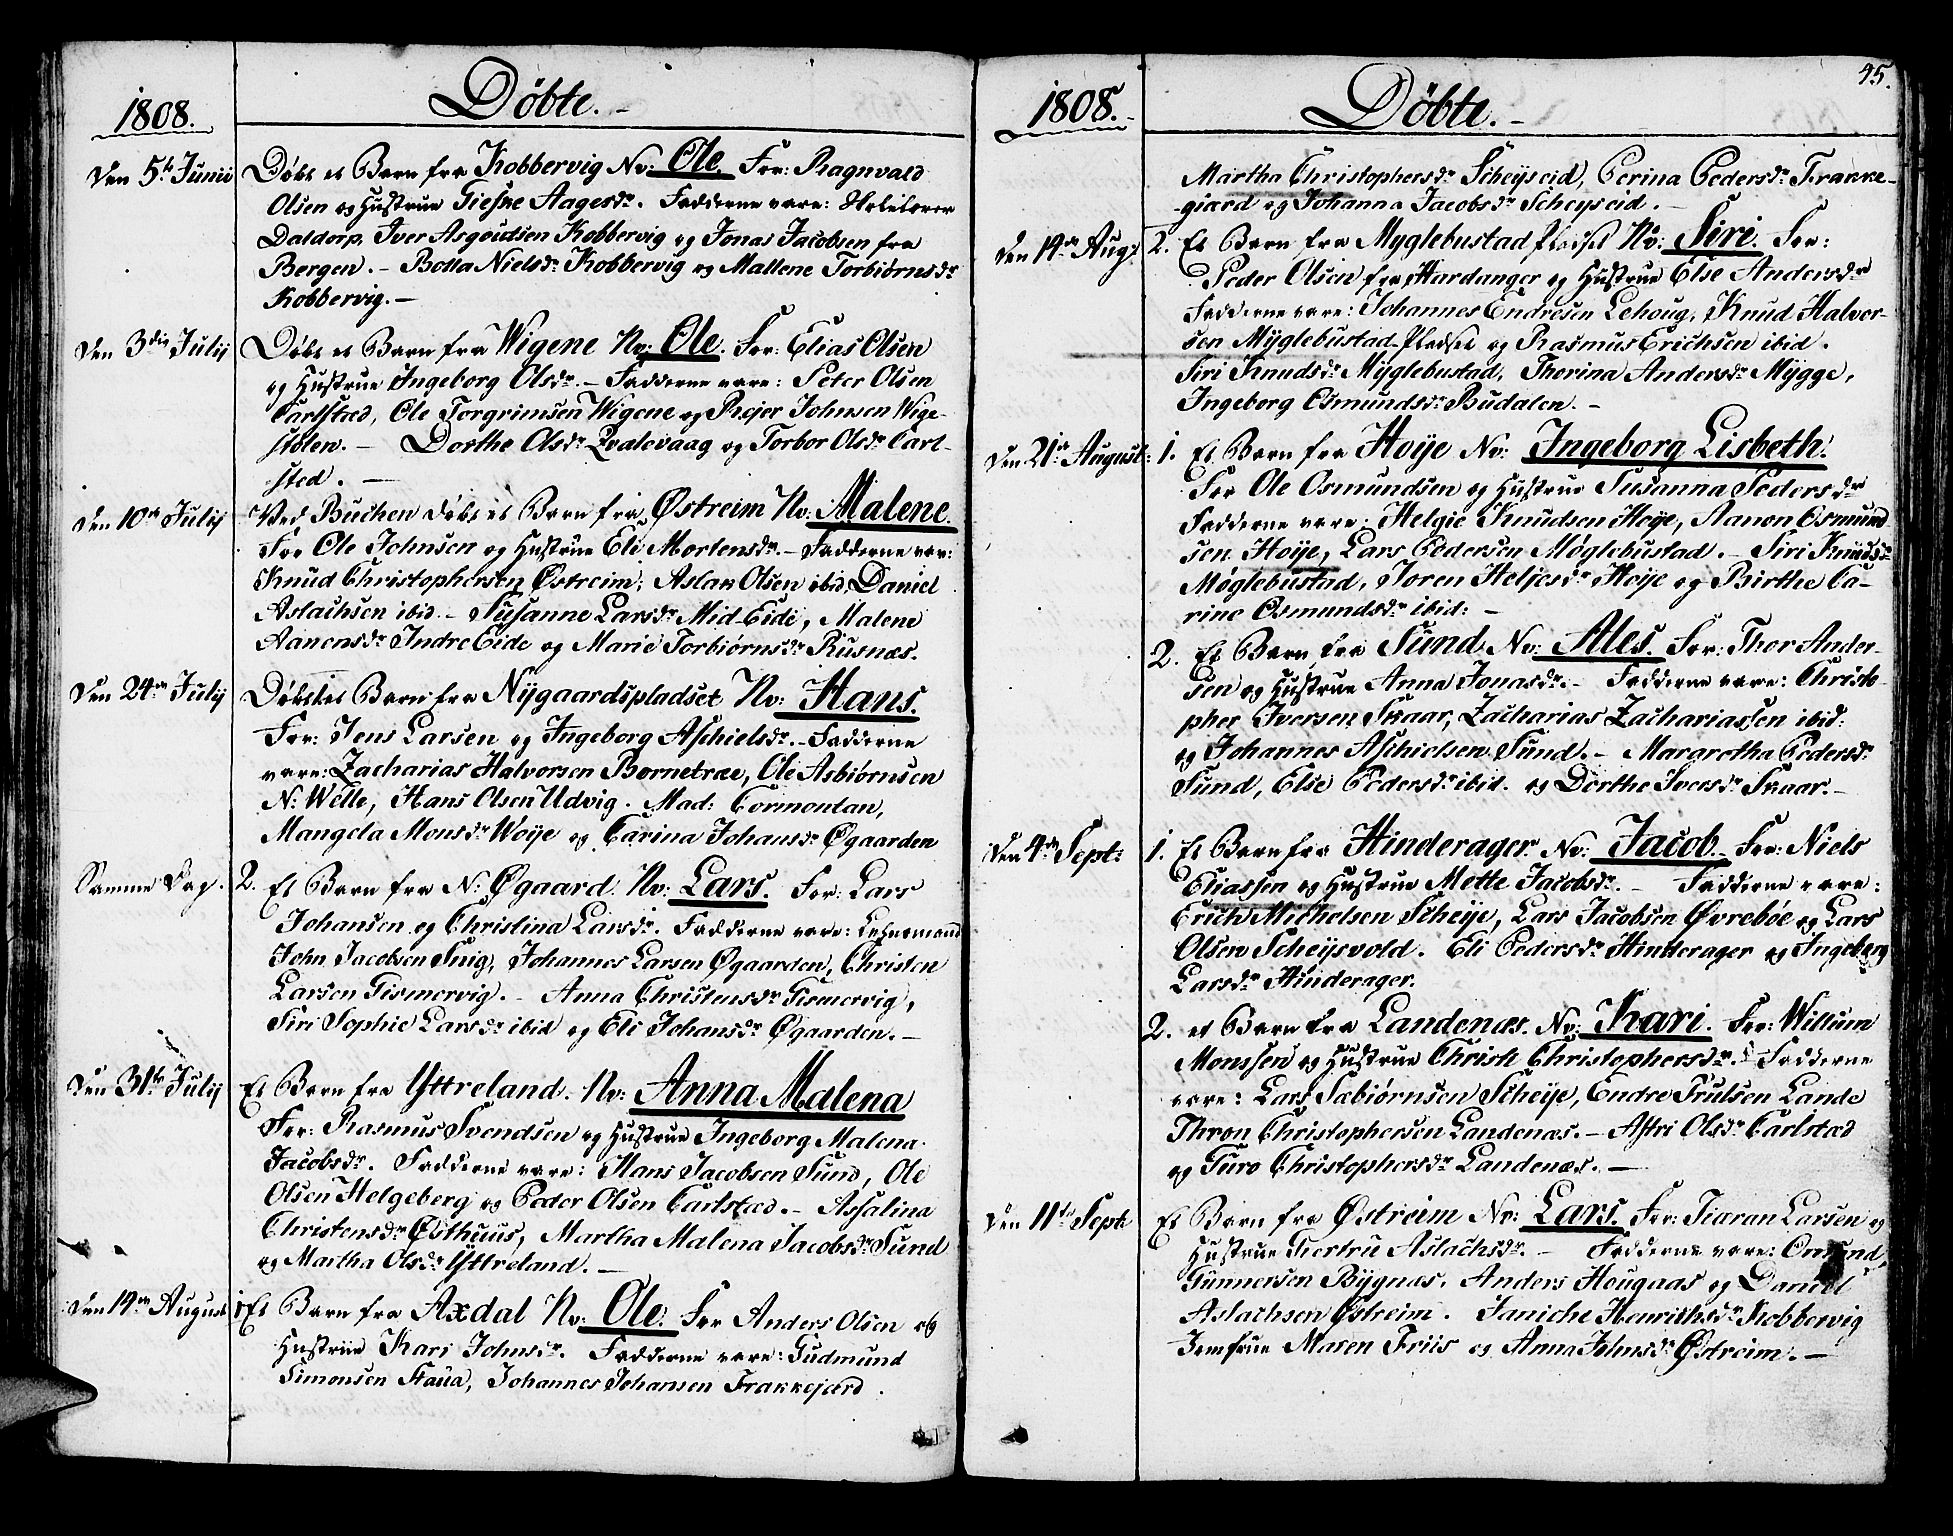 1808. Döbte. -
Den 5te Junii Döbt et Barn fra Kobbervig Nv: Ole. For: Ragnvald
Olsen og Hustrue Gieske Aagesdr. Fadderne vare: Skolelærer
Daldorp, Iver Asgoudsen Kobbervig og Jonas Jacobsen fra
Bergen. - Bolla Nielsdr Kobbervig og Mallene Torbiörnsdr
Kobbervig. -
Den 3die Julij Döbt et Barn fra Wigene Nv: Ole. For: Elias Olsen
og Hustrue Ingeborg Olsdr. - Fadderne vare: Peter Olsen
Carlstæd, Ole Torgrimsen Wigene og Rejer Johnsen Wige-
stolen. - Dorthe Olsdr Qvalevaag og Torbor Olsdr Carl-
sted. -
Den 10de Julij Ved Buchen döbt et Barn fra Østreim Nv: Malene.
For Ole Johnsen og Hustrue Eli Mortensdr. - Fadderne var:
Knud Christophersen Østreim, Aslak Olsen ibid, Daniel
Aslachsen ibid. - Susanne Larsdr Mid-Eide, Malene
Aanensdr Indre Eide og Marie Torbiörnsdr Rusnæs.
Den 24de Julij Döbt et Barn fra Nijgaardspladset Nv: Hans.
For: Jens Larsen og Ingeborg Aschielsdr. - Fadderne
vare: Zacharias Halvorsen Bornetræe, Ole Asbiörnsen
N: Welle, Hans Olsen Udvig. Mad: Cormontan,
Mangela Monsdr Woije og Carina Johansdr Øgaarden
Samme Dag. 2. Et Barn fra N: Øgaard Nv: Lars. For: Lars
Johansen og Christina Larsdr. Fadderne vare: Lehnsmand
John Jacobsen Snig, Johannes Larsen Øgaarden, Christen
Larsen Gismervig. - Anna Christensdr Gismervig,
Siri Sophie Larsdr ibid og Eli Johansdr Øgaarden. -
Den 31te Julij Et Barn fra Yttreland. Nv: Anna Malena
For: Rasmus Svendsen og Hustrue Ingeborg Malena
Jacobsdr. Fadderne vare: Hans Jacobsen Sund, Ole
Olsen Helgeberg og Peder Olsen Carlstæd. - Assalina
Christensdr Østhuus, Martha Malena Jacobsdr Sund
og Martha Olsdr Yttreland. -
Den 14de August 1 Et Barn fra Axdal Nv: Ole. For Anders Olsen og
Hustrue Kari Johnsdr. Fadderne vare: Gudmund
Simonsen Staua, Johannes Johansen Frakkejærd.
45.
1808. - Döbte. -
Martha Christophersdr Scheijseid, Perina Pedersdr Frakke-
-giærd og Johanna Jacobsdr Scheijseid. -
Den 14de Aug: 2. Et Barn fra Myglebustad Pladset Nv: Siri. For:
Peder Olsen fra Hardanger og Hustrue Else Andersdr
Fadderne vare: Johannes Endresen Lehoug, Knud Halvor-
sen Myglebustad Pladset og Rasmus Erichsen ibid.
Siri Knudsdr Myglebustad, Thorina Andersdr Mygge,
Ingeborg Osmundsdr Budalen. -
Den 21de August: 1. Et Barn fra Hoije Nv: Ingeborg Lisbeth.
For Ole Osmundsen og Hustrue Susanna Pedersdr
Fadderne vare: Helgie Knudsen Hoije, Aanon Osmund
sen Hoije, Lars Pedersen Möglebustad. - Siri Knudsdr
Möglebustad, Joren Heljesdr Hoije og Birthe Ca-
rine Osmundsdr ibid: -
2. Et Barn fra Sund Nv: Ales. For: Thor Ander-
sen og Hustrue Anna Jonasdr. - Fadderne vare: Christo
pher Iversen Skaar, Zacharias Zachariassen ibid:
og Johannes Aschielsen Sund. - Margretha Pedersdr
Sund, Else Pedersdr ibid. og Dorthe Iversdr Skaar. -
Den 4de Sept: 1. Et Barn fra Hinderager Nv: Jacob. For: Niels
Eliassen og Hustrue Mette Jacobsdr. - Fadderne vare:
Erich Michelsen Scheije, Lars Jacobsen Øvreböe og Lars
Olsen Scheijsvold. Eli Pedersdr Hinderager og Ingeborg
Larsdr Hinderager.
2. et Barn fra Landenæs. Nv: Kari. For: Willum
Monssen og Hustrue Christi Christophersdr. Fadderne
vare: Lars Sæbiörnsen Scheije, Endre Trulsen Lande
Thron Christophersen Landenæs. - Astri Olsdr Carlstæd
og Guro Christophersdr Landenæs. -
Den 11te Sept: Et Barn fra Østreim Nv: Lars. For: Tiæran Larsen og
Hustrue Giertru Aslachsdr. - Fadderne vare: Omund
Gunnersen Bygnæs, Anders Hougaas og Daniel
Aslachsen Østreim. Janiche Henrichsdr Kobbervig
Jomfrue Maren Friis og Anna Johnsdr Østreim. -